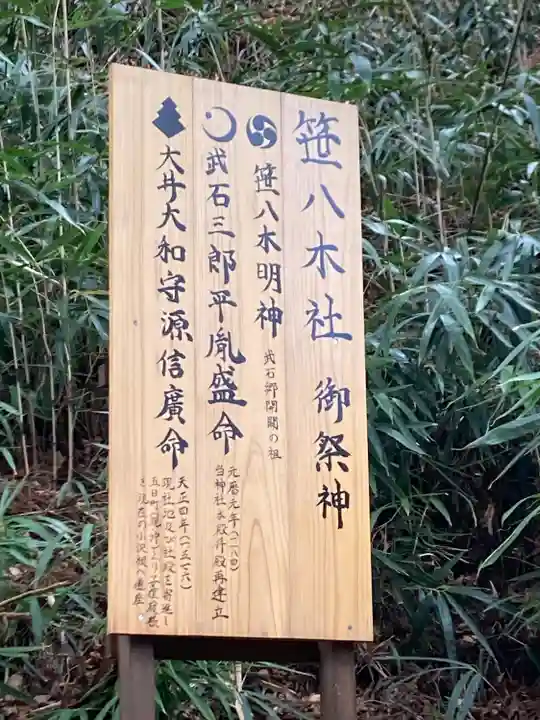 笹八木社 御祭神
笹八木明神 武石郷開闢の祖
武石三郎平胤盛命 元暦元年(一一八四)
当神社本殿拝殿再建立
大井大和守源信廣命 天正四年(一五七六)
現社地及び社殿を寄進し
五日町
現在の小沢根へ遷座